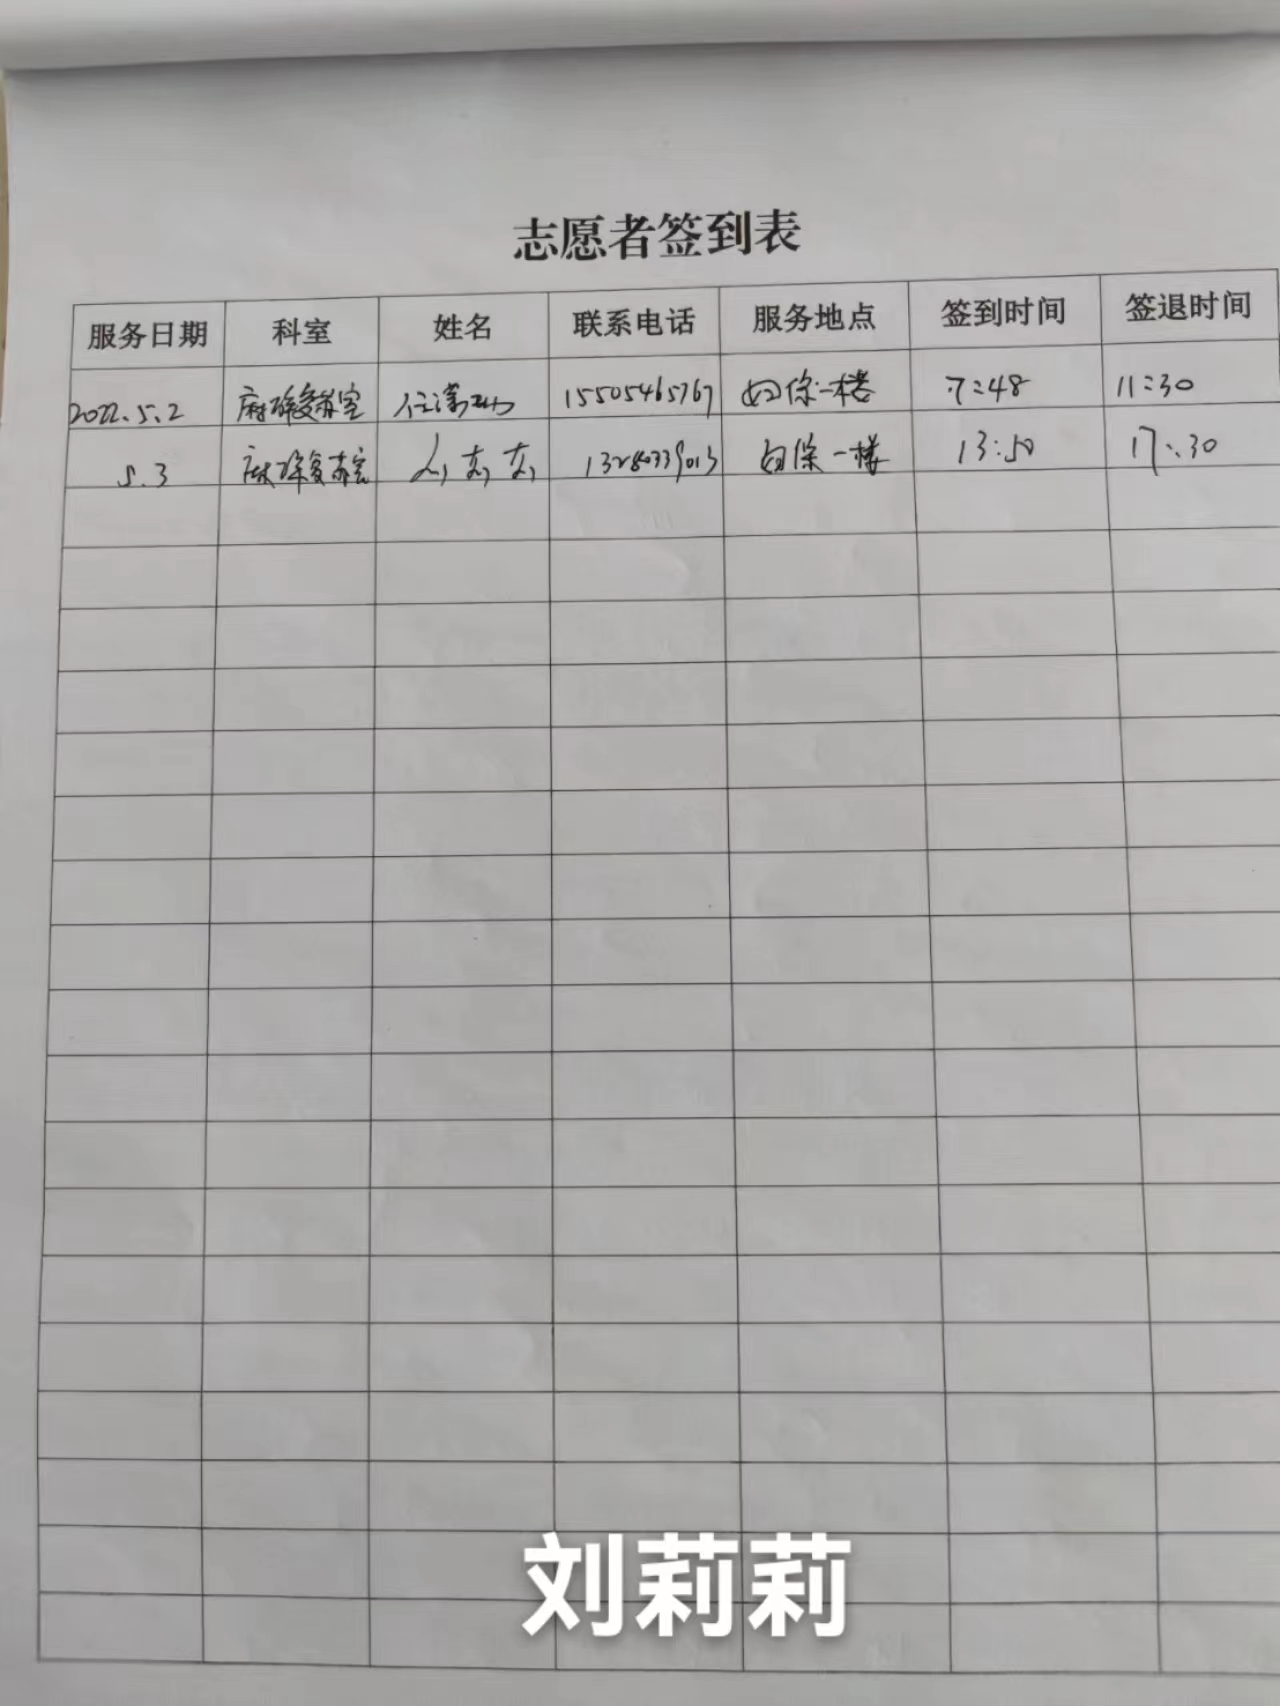 志愿者签到表
服务日期 科室 姓名 联系电话 服务地点 签到时间 签退时间
2022.5.2 麻醉复苏室 15505465767 妇保一楼 7:48 11:30
5.3 麻醉复苏室 刘莉莉 13280339013 妇保一楼 13:50 17:30
刘莉莉